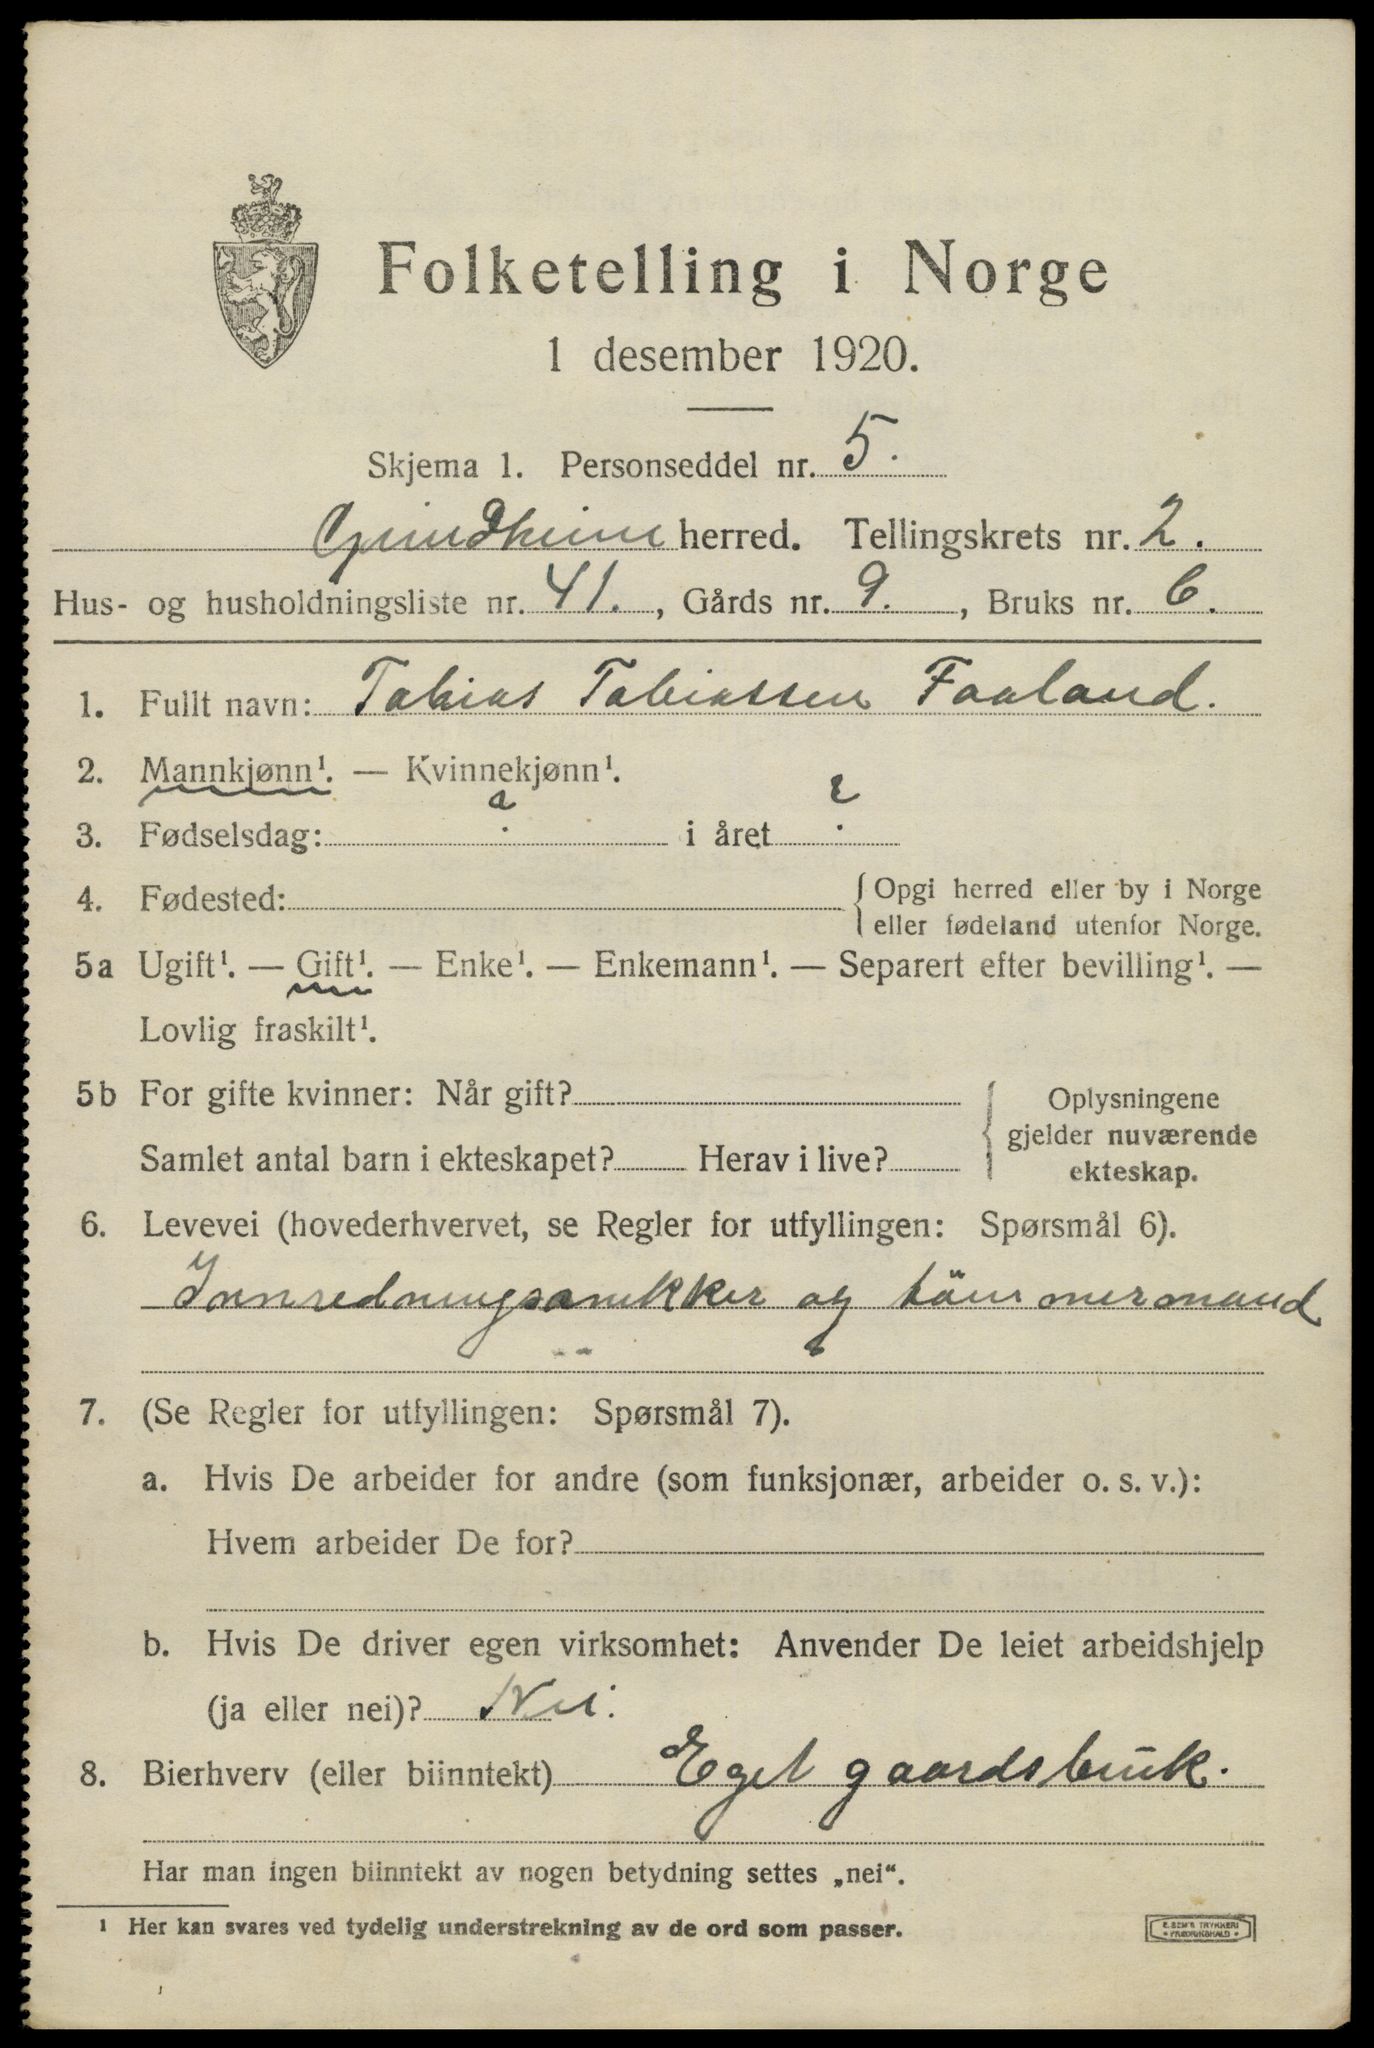 Folketelling i Norge
1 desember 1920.
Skjema 1. Personseddel nr. 5.
Grindheim herred. Tellingskrets nr. 2.
Hus- og husholdningsliste nr. 41., Gårds nr. 9., Bruks nr. 6.
1. Fullt navn: Tobias Tobiassen Faaland.
2. Mannkjønn¹. — Kvinnekjønn¹.
3. Fødselsdag: ? i året ?
4. Fødested: { Opgi herred eller by i Norge
eller fødeland utenfor Norge.
5a Ugift¹. — Gift¹. — Enke¹. — Enkemann¹. — Separert efter bevilling¹. —
Lovlig fraskilt¹.
5b For gifte kvinner: Når gift?
Samlet antal barn i ekteskapet? Herav i live?
Oplysningene
gjelder nuværende
ekteskap.
6. Levevei (hovederhvervet, se Regler for utfyllingen: Spørsmål 6).
Innredningssnikker og tömmermand
7. (Se Regler for utfyllingen: Spørsmål 7).
a. Hvis De arbeider for andre (som funksjonær, arbeider o. s. v.):
Hvem arbeider De for?
b. Hvis De driver egen virksomhet: Anvender De leiet arbeidshjelp
(ja eller nei)? Nei.
8. Bierhverv (eller biinntekt) Eget gaardsbruk.
Har man ingen biinntekt av nogen betydning settes „nei“.
¹ Her kan svares ved tydelig understrekning av de ord som passer.
E. SEM'S TRYKKERI
* FREDRIKSHALD *